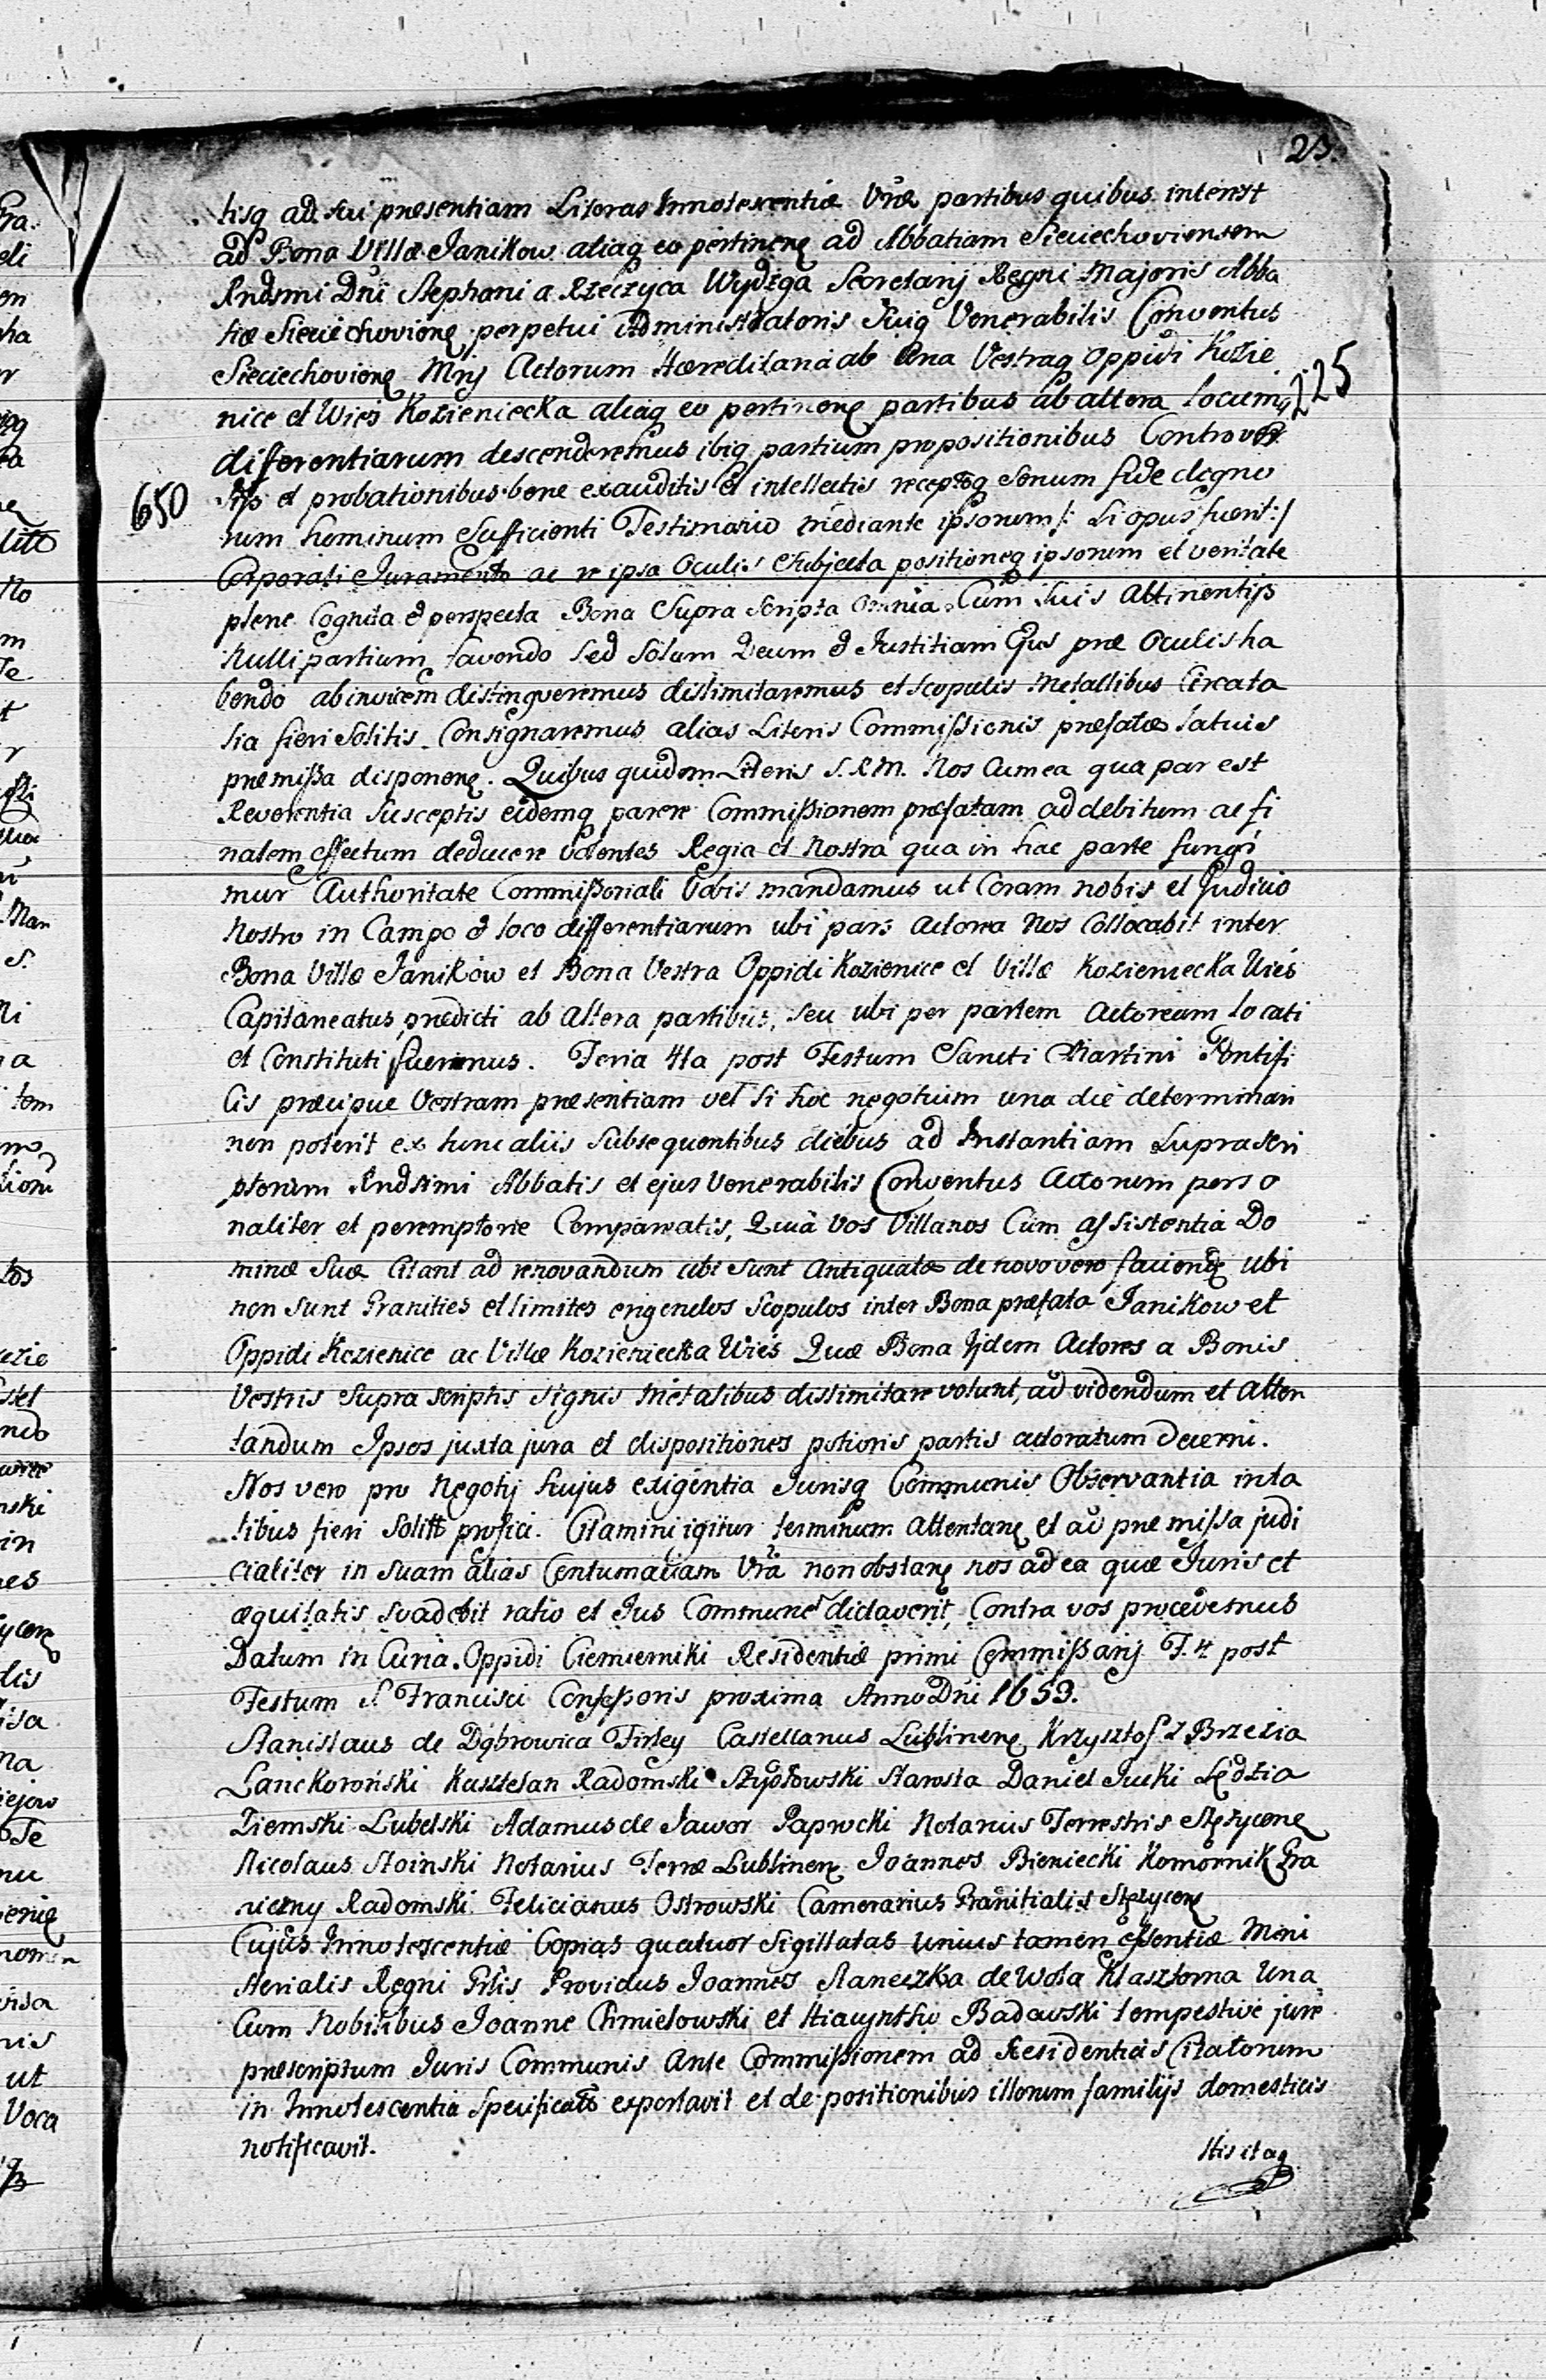 23.
tisq ad sui presentiam Literas Innotescentiæ Vræ partibus quibus interest
ad Bona Villæ Janikow aliaq eo pertinenę ad Abbatiam Sieciechoviensem
Rndsmi Dñi Stephani a Rzeczyca Wydżga Secretarij Regni Majoris Abba
tiæ Sieciechovienę perpetui Administratoris Suiq Venerabilis Conventus
Sieciechovienę Mrij Actorum Hæreditaria ab Una Vestraq Oppidi Kozie
nice et Wieś Kozieniecka aliaq eo pertinenę partibus ab altera locumq
225
differentiarum descenderemus ibiq partium propositionibus Controver
650
sijs et probationibus bene exauditis et intellectis receptoq Senum fide digno
rum hominum Sufficienti Testimonio mediante ipsorum /: si opus fuerit :/
Corporali Juramento ac re ipsa Oculis Subjecta positioneq ipsorum et veritate
plene Cognita et perspecta Bona Supra Scripta omnia Cum Suis Attinentijs
Nulli partium favendo Sed Solum Deum et Justitiam Ejus præ Oculis ha
bendo ab invicem distingveremus dislimitaremus et Scopulis Metallibus Circa ta
lia fieri Solitis Consignaremus alias Literis Commissionis præfatæ latius
præmissa disponenę. Quibus quidem Literis S. R M. Nos Cum ea qua par est
Reverentia Susceptis eidemq parere Commissionem præfatam ad debitum ac fi
nalem effectum deducere Volentes Regia et Nostra qua in hac parte fungi
mur Authoritate Commissoriali Vobis mandamus ut Coram nobis et Judicio
Nostro in Campo et loco differentiarum ubi pars Actorea Nos Collocabit inter
Bona Villæ Janików et Bona Vestra Oppidi Kozienice et Villæ Kozieniecka Wieś
Capitaneatus prædicti ab Altera partibus, seu ubi per partem Actoream locati
et Constituti fuerimus. Feria 4ta post Festum Sancti Martini Pontifi
Cis præcipue Vestram præsentiam vel Si hoc negotium una die determinari
non poterit ex tunc aliis Subsequentibus diebus ad Instantiam Suprascri
ptorum Rndsimi Abbatis et ejus Venerabilis Conventus Actorum perso
naliter et peremptorie Compareatis, Quia Vos Villanos Cum assistentia Do
minæ Suæ Citant ad renovandum ubi sunt Antiquatæ de novo vero faciendę ubi
non Sunt Granities et limites erigendos Scopulos inter Bona præfata Janikow et
Oppidi Kozienice ac Villæ Kozieniecka Wieś Quæ Bona ijdem Actores a Bonis
Vestris Supra Scriptis Signis Metalibus dislimitare volunt, ad videndum et Atten
tandum Ipsos juxta jura et dispositiones potioris partis adoratum Decerni.
Nos vero pro Negotij hujus exigentia Jurisq Communis Observantia in ta
libus fieri Solitt profici. Citamini igitur terminum Attentarę et ad præmissa judi
cialiter in Suam alias Contumaciam Vrã non obstanę nos ad ea quæ Juris et
æquitatis Svadebit ratio et Jus Commune dictaverit, Contra vos procedemus
Datum in Curia Oppidi Ciemierniki Residentiæ primi Commissarij F. 4 post
Festum S. Francisci Confessoris proxima Anno Dni 1653.
Stanislaus de Dąbrowica Firley Castellanus Lublinenę Krzysztof z Brzezia
Lanckoroński Kasztelan Radomski Stężowski Starosta Daniel Jucki Sędzia
Ziemski Lubelski Adamus de Jawor Paprocki Notarius Terrestris Stężycenę
Nicolaus Stoinski Notarius Terræ Lublinenę Joannes Bieniecki Komornik Gra
niczny Radomski Felicianus Ostrowski Camerarius Granitialis Stężycenę
Cujus Innotescentiæ Copias quatuor Sigillatas unius tamen essentiæ Mini
sterialis Regni Grlis Providus Joannes Staneczka de Wola Klasztorna Una
Cum Nobilibus Joanne Chmielowski et Hiacyntho Badowski tempestive jure
præscriptum Juris Communis Ante Commissionem ad Residentias Citatorum
in Innotescentia Specificatt exportavit et de positionibus illorum familijs domesticis
notificavit.
His itaq